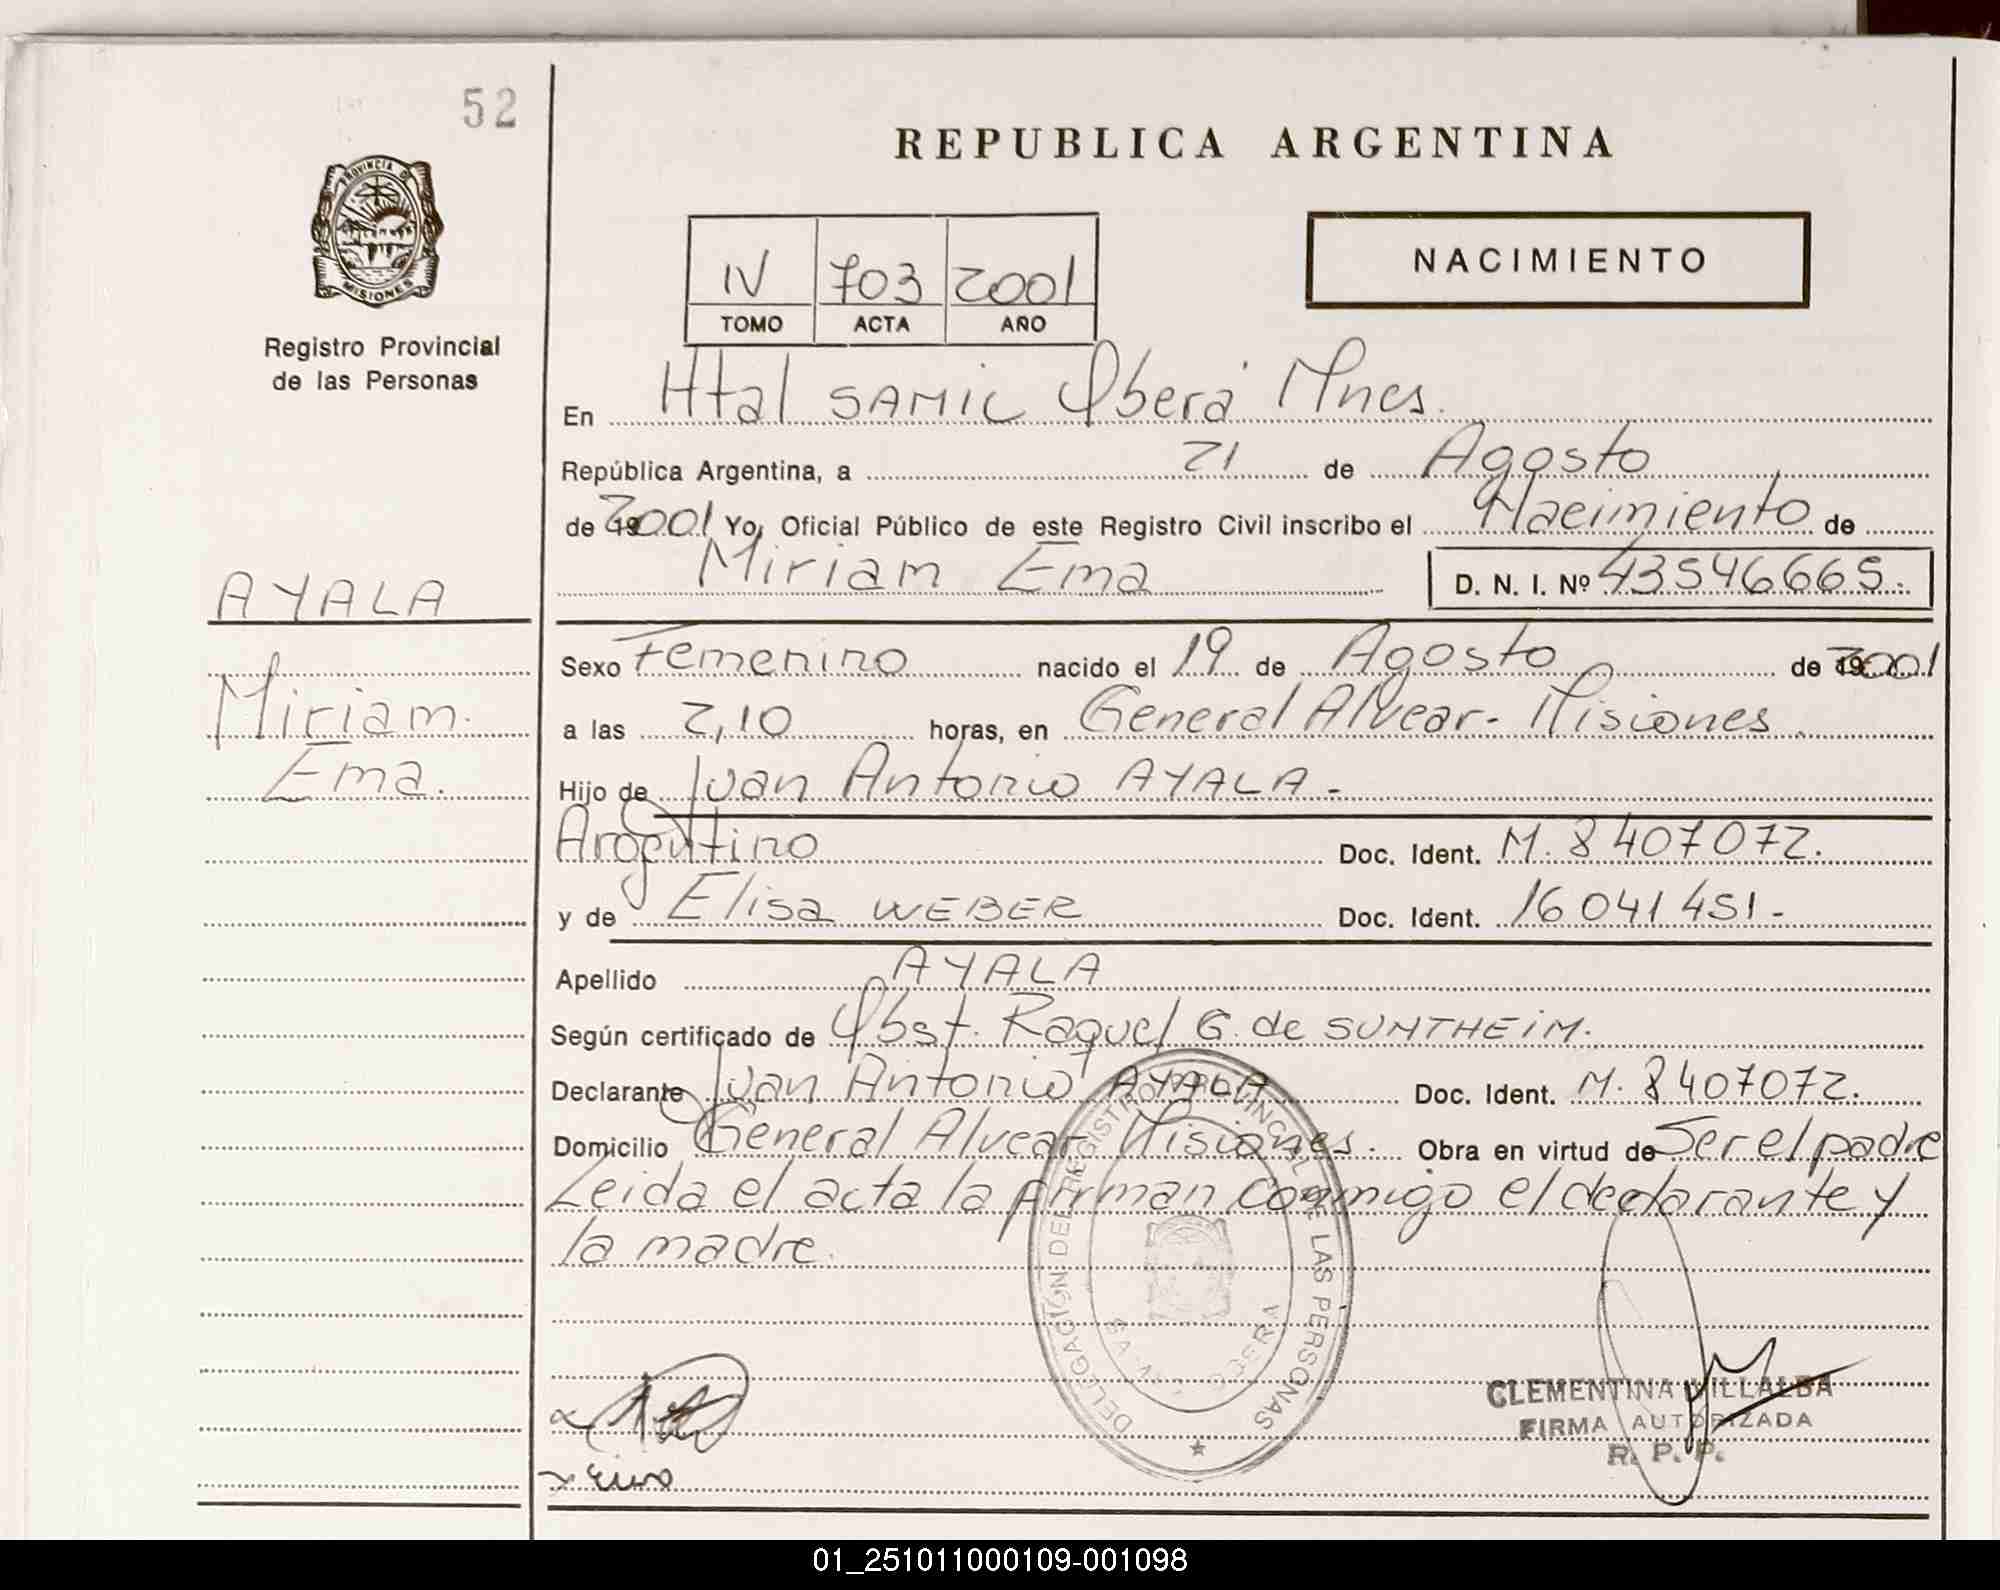 52
REPUBLICA ARGENTINA
PROVINCIA DE MISIONES
Registro Provincial
de las Personas
IV 703 2001
TOMO ACTA AÑO
NACIMIENTO
En Htal SAMIC Oberá Mnes.
República Argentina, a 21 de Agosto
de 2001 Yo, Oficial Público de este Registro Civil inscribo el Nacimiento de
Miriam Ema D. N. I. Nº 43546665.
AYALA
Miriam
Ema.
Sexo Femenino nacido el 19 de Agosto de 2001
a las 2,10 horas, en General Alvear - Misiones
Hijo de Juan Antonio AYALA -
Argentino Doc. Ident. M. 8407072.
y de Elisa WEBER Doc. Ident. 16041451 -
Apellido AYALA
Según certificado de Obst. Raquel G. de SUMTHEIM.
Declarante Juan Antonio AYALA Doc. Ident. M. 8407072.
Domicilio General Alvear Misiones. Obra en virtud de Ser el padre
Leida el acta la firman conmigo el declarante y
la madre.
DELEGACIÓN DEL REGISTRO PROVINCIAL DE LAS PERSONAS
CLEMENTINA VILLALBA
FIRMA AUTORIZADA
R. P. P.
01_251011000109-001098